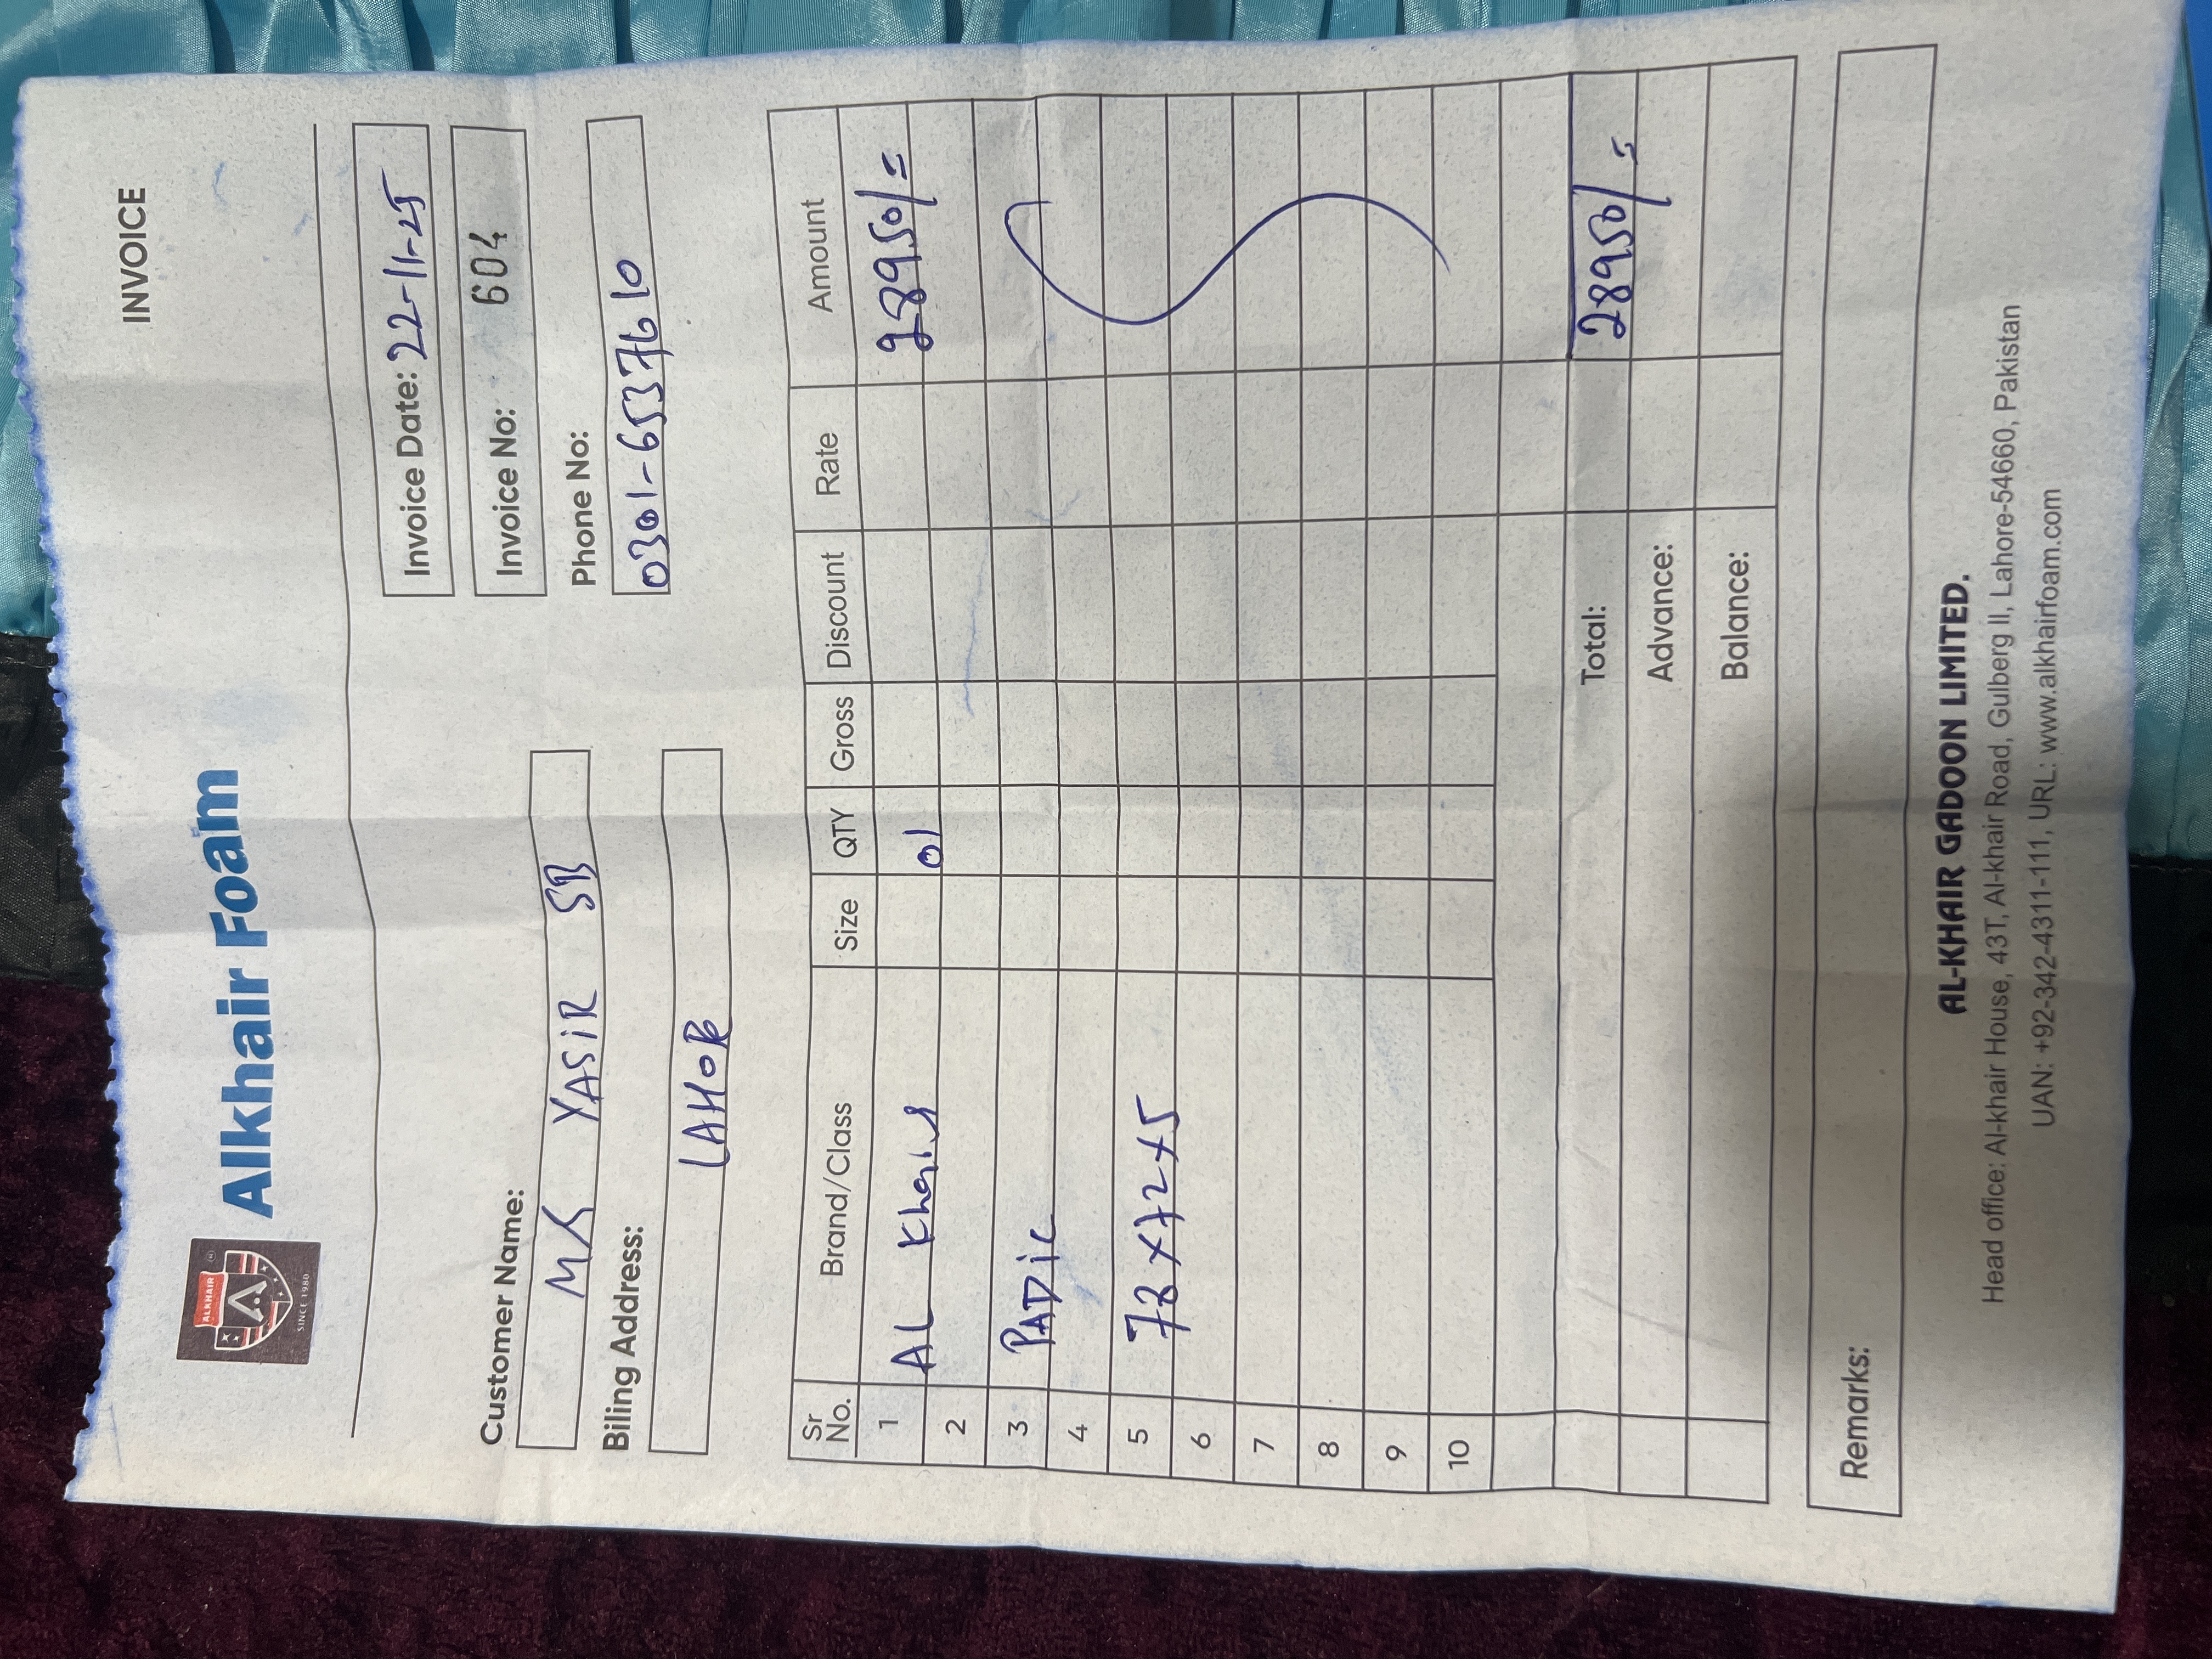 INVOICE
ALKHAIR
SINCE 1980
Alkhair Foam
Invoice Date: 22-11-25
Invoice No: 604
Customer Name:
MR YASIR SB
Phone No:
0301-6537610
Biling Address:
LAHOR
Sr No. Brand/Class Size QTY Gross Discount Rate Amount
1 AL Khair 01 28950/=
2
3 PADIC
4
5 78x72x5
6
7
8
9
10
Total: 28950/=
Advance:
Balance:
Remarks:
AL-KHAIR GADOON LIMITED.
Head office: Al-khair House, 43T, Al-khair Road, Gulberg II, Lahore-54660, Pakistan
UAN: +92-342-4311-111, URL: www.alkhairfoam.com